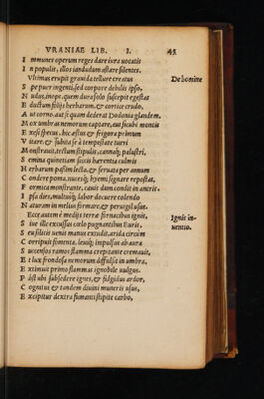 VRANIAE LIB. I. 45
I mmunes operum reges dare iura vocatis
I n populis, illos iandudum astare silentes.
Vltimus erupit grauida tellure creatus De homine
S pe puer ingenti, sed corpore debilis ipso,
N udus, inops, quem dura solo suscepit egestas
E ductum foliis herbarum, & cortice crudo,
A ut corno, aut si quam dederat Dodonia glandem.
M ox umbras nemorum captare, cauis succubi montis
E xesi specus, hic æstus & frigora primum
V itare, & subita se à tempestate tueri
M onstrauit, tectum stipulis, cannaq; palustri,
S emina quinetiam siccis hærentia culmis
H erbarum passim lecta, & seruata per annum
C ondere poma, nucesq́;, hyemi signare repostas,
F ormica monstrante, cauis dum condit in antris.
I psa dies, multusq́; labor docuere colendo
N aturam in melius firmare, & peruigil usus.
Ecce autem è medijs terræ fornacibus ignis, Ignis in-
S iue ille excussus cœlo pugnantibus Euris, uentio.
S eu silicis uenis manus excudit, arida circum
C orripuit fomenta, leuiq́; impulsus ab aura
S uccensos ramos flamma crepitante cremauit,
E t lux frondosa nemorum diffulsa in umbra,
E xtimuit primo flammas ignobile uulgus.
P ost ubi subsedere ignes, & fulgidus ardor,
C ognitus & tandem diuini muneris usus,
E xcipitur dextra fumantis stipite carbo,